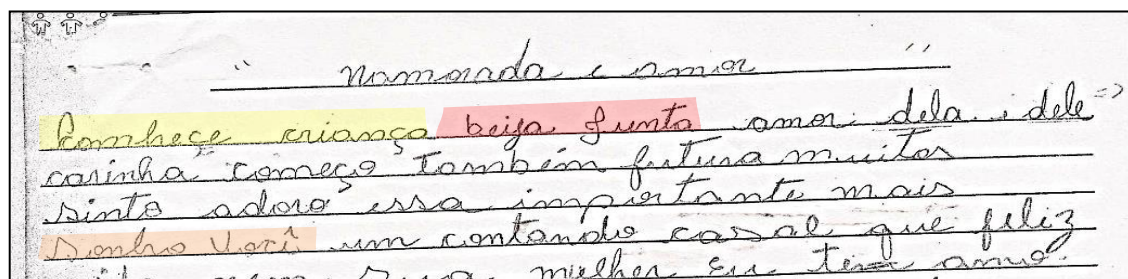 " Namorada e amor "
Conheçe criança beija junto amor dela e dele =>
carinha começo também futura muitos
sinto adoro essa importante mais
sonho você um contando casal que feliz
mulher eu tem amo.